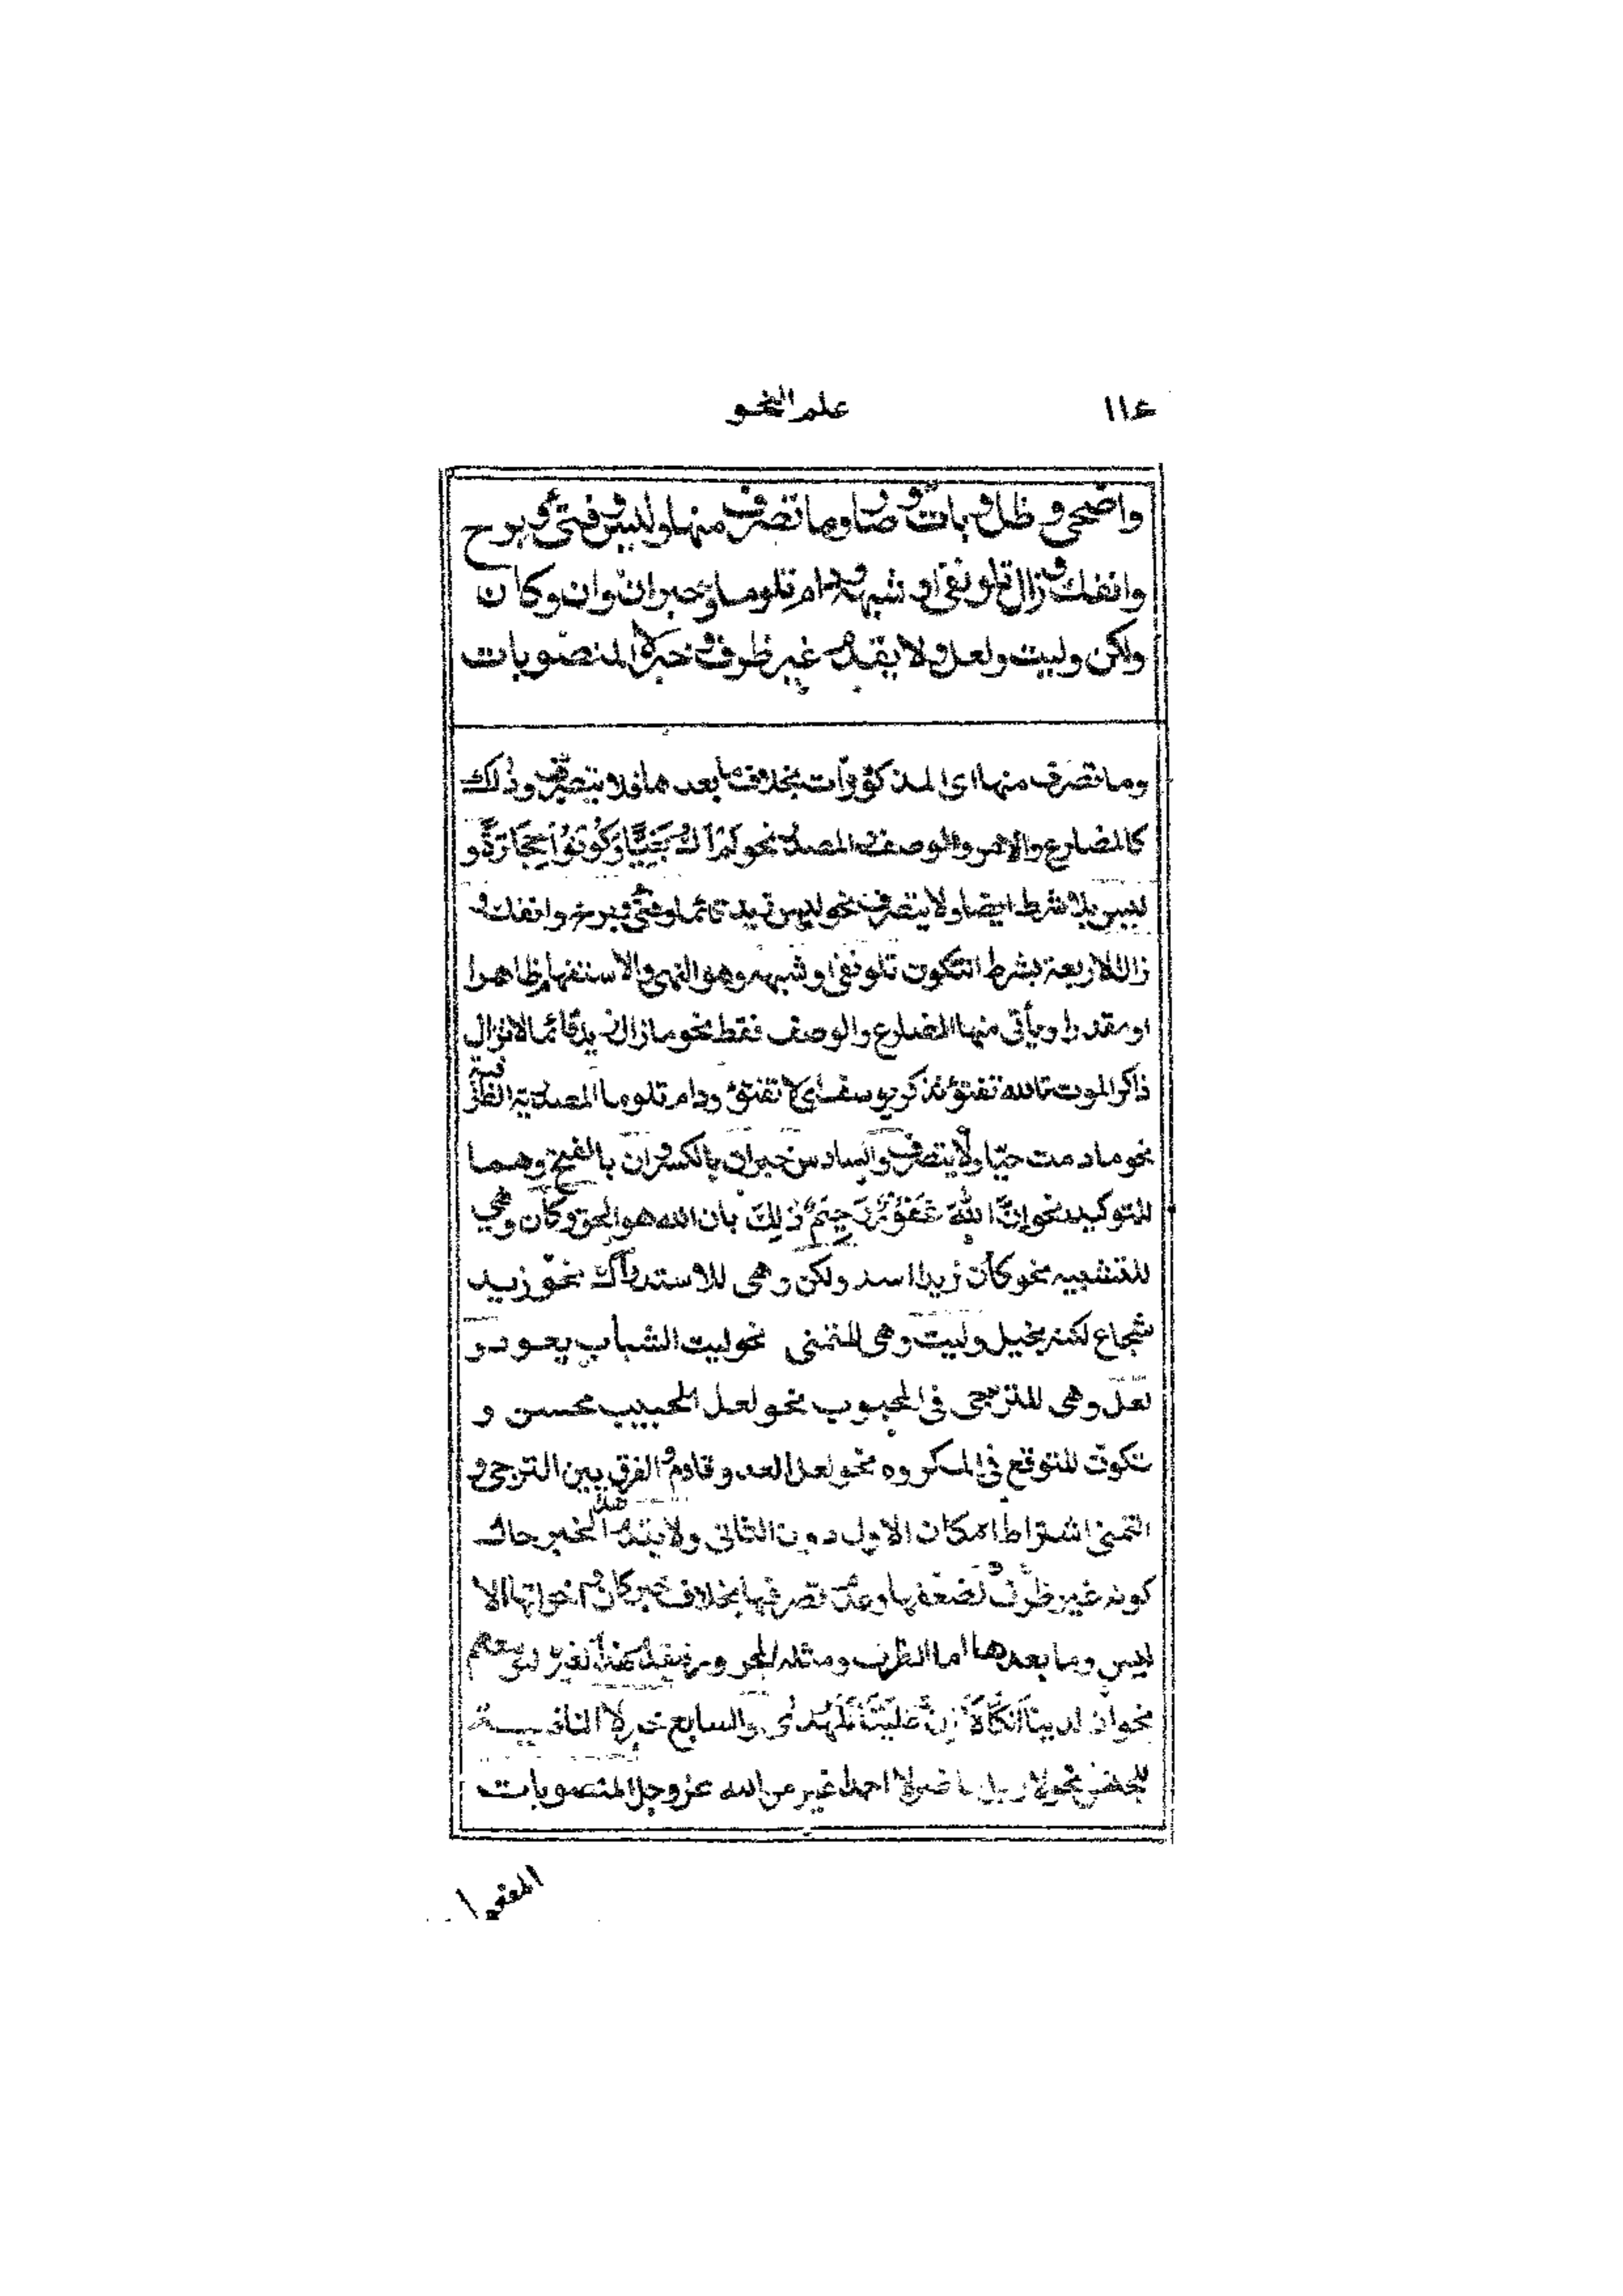 ١١٤ علم النحو
واضحى و ظل و بات و صار وما تصرف منها و ليس و فتئ و برح
وانفك و زال تلو نفى او شبهه و دام تلو ما و خبر ان وان وكان
ولكن وليت ولعل ولا يقدم غير ظرف و خبر لا المنصوبات
وما تصرف منها اى المذكورات بخلاف ما بعدها فلا يتصرف وذلك
كالمضارع والامر والوصف المصدر نحو لَمْ اَكُ بَغِيًّا وَكُونُوْا حِجَارَةً و
ليس بلا شرط ايضا ولا يتصرف نحو ليس زيد قائما و فتئ و برح وانفك و
زال الاربعة بشرط ان تكون تلو نفى او شبهه وهو النهى والاستفهام ظاهرا
او مقدرا ويأتى منها المضارع والوصف فقط نحو ما زال زيد قائما لا تزال
ذاكر الموت تالله تفتؤ تذكر يوسف اى لا تفتؤ ودام تلو ما المصدرية الظرفية
نحو ما دمت حيّا ولا يتصرف والسادس خبر ان بالكسر و ان بالفتح وهما
للتوكيد نحو اِنَّ اللهَ غَفُوْرٌ رَّحِيْمٌ ذٰلِكَ بان الله هو الحق وكأن وهي
للتشبيه نحو كأن زيدا اسد ولكن وهى للاستدراك نحو زيد
شجاع لكنه بخيل وليت وهى للتمنى نحو ليت الشباب يعود و
لعلّ وهى للترجى فى المحبوب نحو لعل الحبيب محسن و
تكون للتوقع فى المكروه نحو لعل العدو قادم و الفرق بين الترجى و
التمنى اشتراط امكان الاول دون الثانى ولا يتقدم الخبر حال
كونه غير ظرف لضعفها وعدم تصرفها بخلاف خبر كان و اخواتها الا
ليس وما بعدها اما الظرف ومثله المجرور فيقدم هنا لتوسعهم
نحو ان لدينا اَنْكَالًا اِنَّ عَلَيْنَا لَلْهُدٰى والسابع خبر لا النافية
للجنس نحو لا رجل حاضر لا احد اغير من الله عز وجل المنصوبات